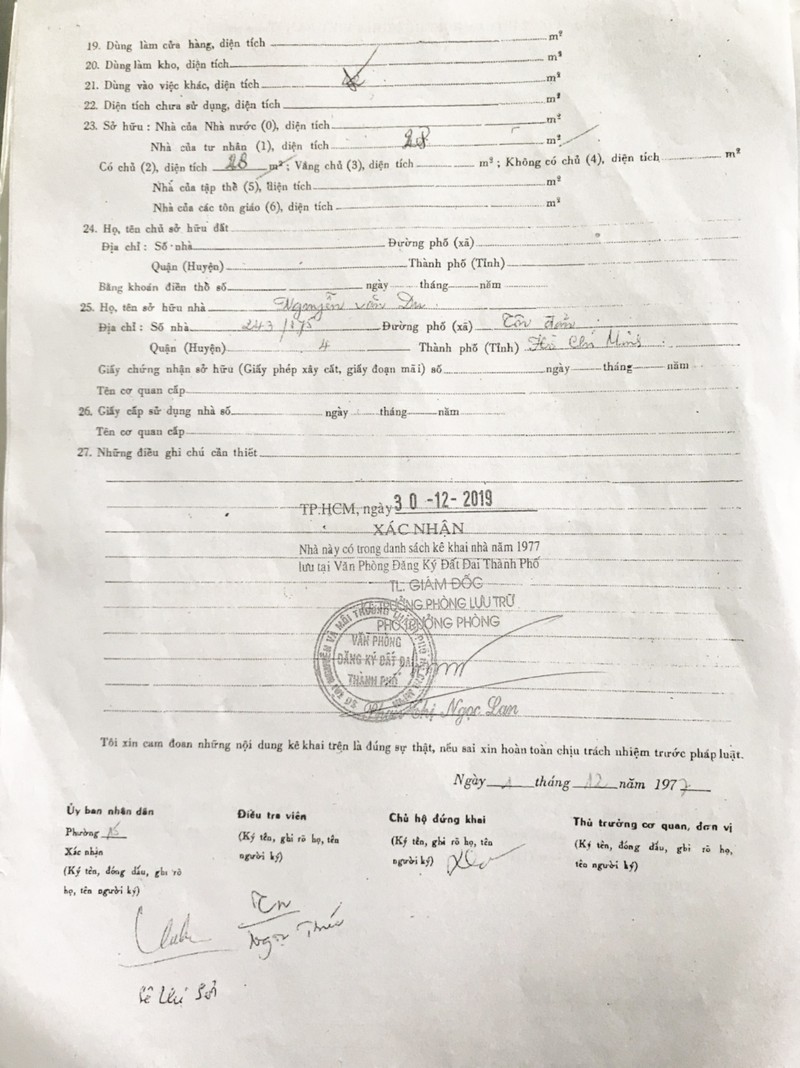 19. Dùng làm cửa hàng, diện tích m²
20. Dùng làm kho, diện tích m²
21. Dùng vào việc khác, diện tích m²
22. Diện tích chưa sử dụng, diện tích m²
23. Sở hữu : Nhà của Nhà nước (0), diện tích m²
Nhà của tư nhân (1), diện tích 28 m²
Có chủ (2), diện tích 28 m² ; Vắng chủ (3), diện tích m² ; Không có chủ (4), diện tích m²
Nhà của tập thể (5), diện tích m²
Nhà của các tôn giáo (6), diện tích m²
24. Họ, tên chủ sở hữu đất
Địa chỉ : Số nhà Đường phố (xã)
Quận (Huyện) Thành phố (Tỉnh)
Bằng khoán điền thổ số ngày tháng năm
25. Họ, tên sở hữu nhà Nguyễn văn Du
Địa chỉ : Số nhà 243/ Đường phố (xã) Tôn đản
Quận (Huyện) 4 Thành phố (Tỉnh) Hồ Chí Minh
Giấy chứng nhận sở hữu (Giấy phép xây cất, giấy đoạn mãi) số ngày tháng năm
Tên cơ quan cấp
26. Giấy cấp sử dụng nhà số ngày tháng năm
Tên cơ quan cấp
27. Những điều ghi chú cần thiết
TP.HCM, ngày 30-12-2019
XÁC NHẬN
Nhà này có trong danh sách kê khai nhà năm 1977
lưu tại Văn Phòng Đăng Ký Đất Đai Thành Phố
TL. GIÁM ĐỐC
TRƯỞNG PHÒNG LƯU TRỮ
PHÓ TRƯỞNG PHÒNG
VĂN PHÒNG
ĐĂNG KÝ ĐẤT ĐAI
THÀNH PHỐ
Thị Ngọc Lan
Tôi xin cam đoan những nội dung kê khai trên là đúng sự thật, nếu sai xin hoàn toàn chịu trách nhiệm trước pháp luật.
Ngày tháng 12 năm 1977
Ủy ban nhân dân
Phường
Xác nhận
(Ký tên, đóng dấu, ghi rõ
họ, tên người ký)
Điều tra viên
(Ký tên, ghi rõ họ, tên
người ký)
Chủ hộ đứng khai
(Ký tên, ghi rõ họ, tên
người ký)
Thủ trưởng cơ quan, đơn vị
(Ký tên, đóng dấu, ghi rõ họ,
tên người ký)